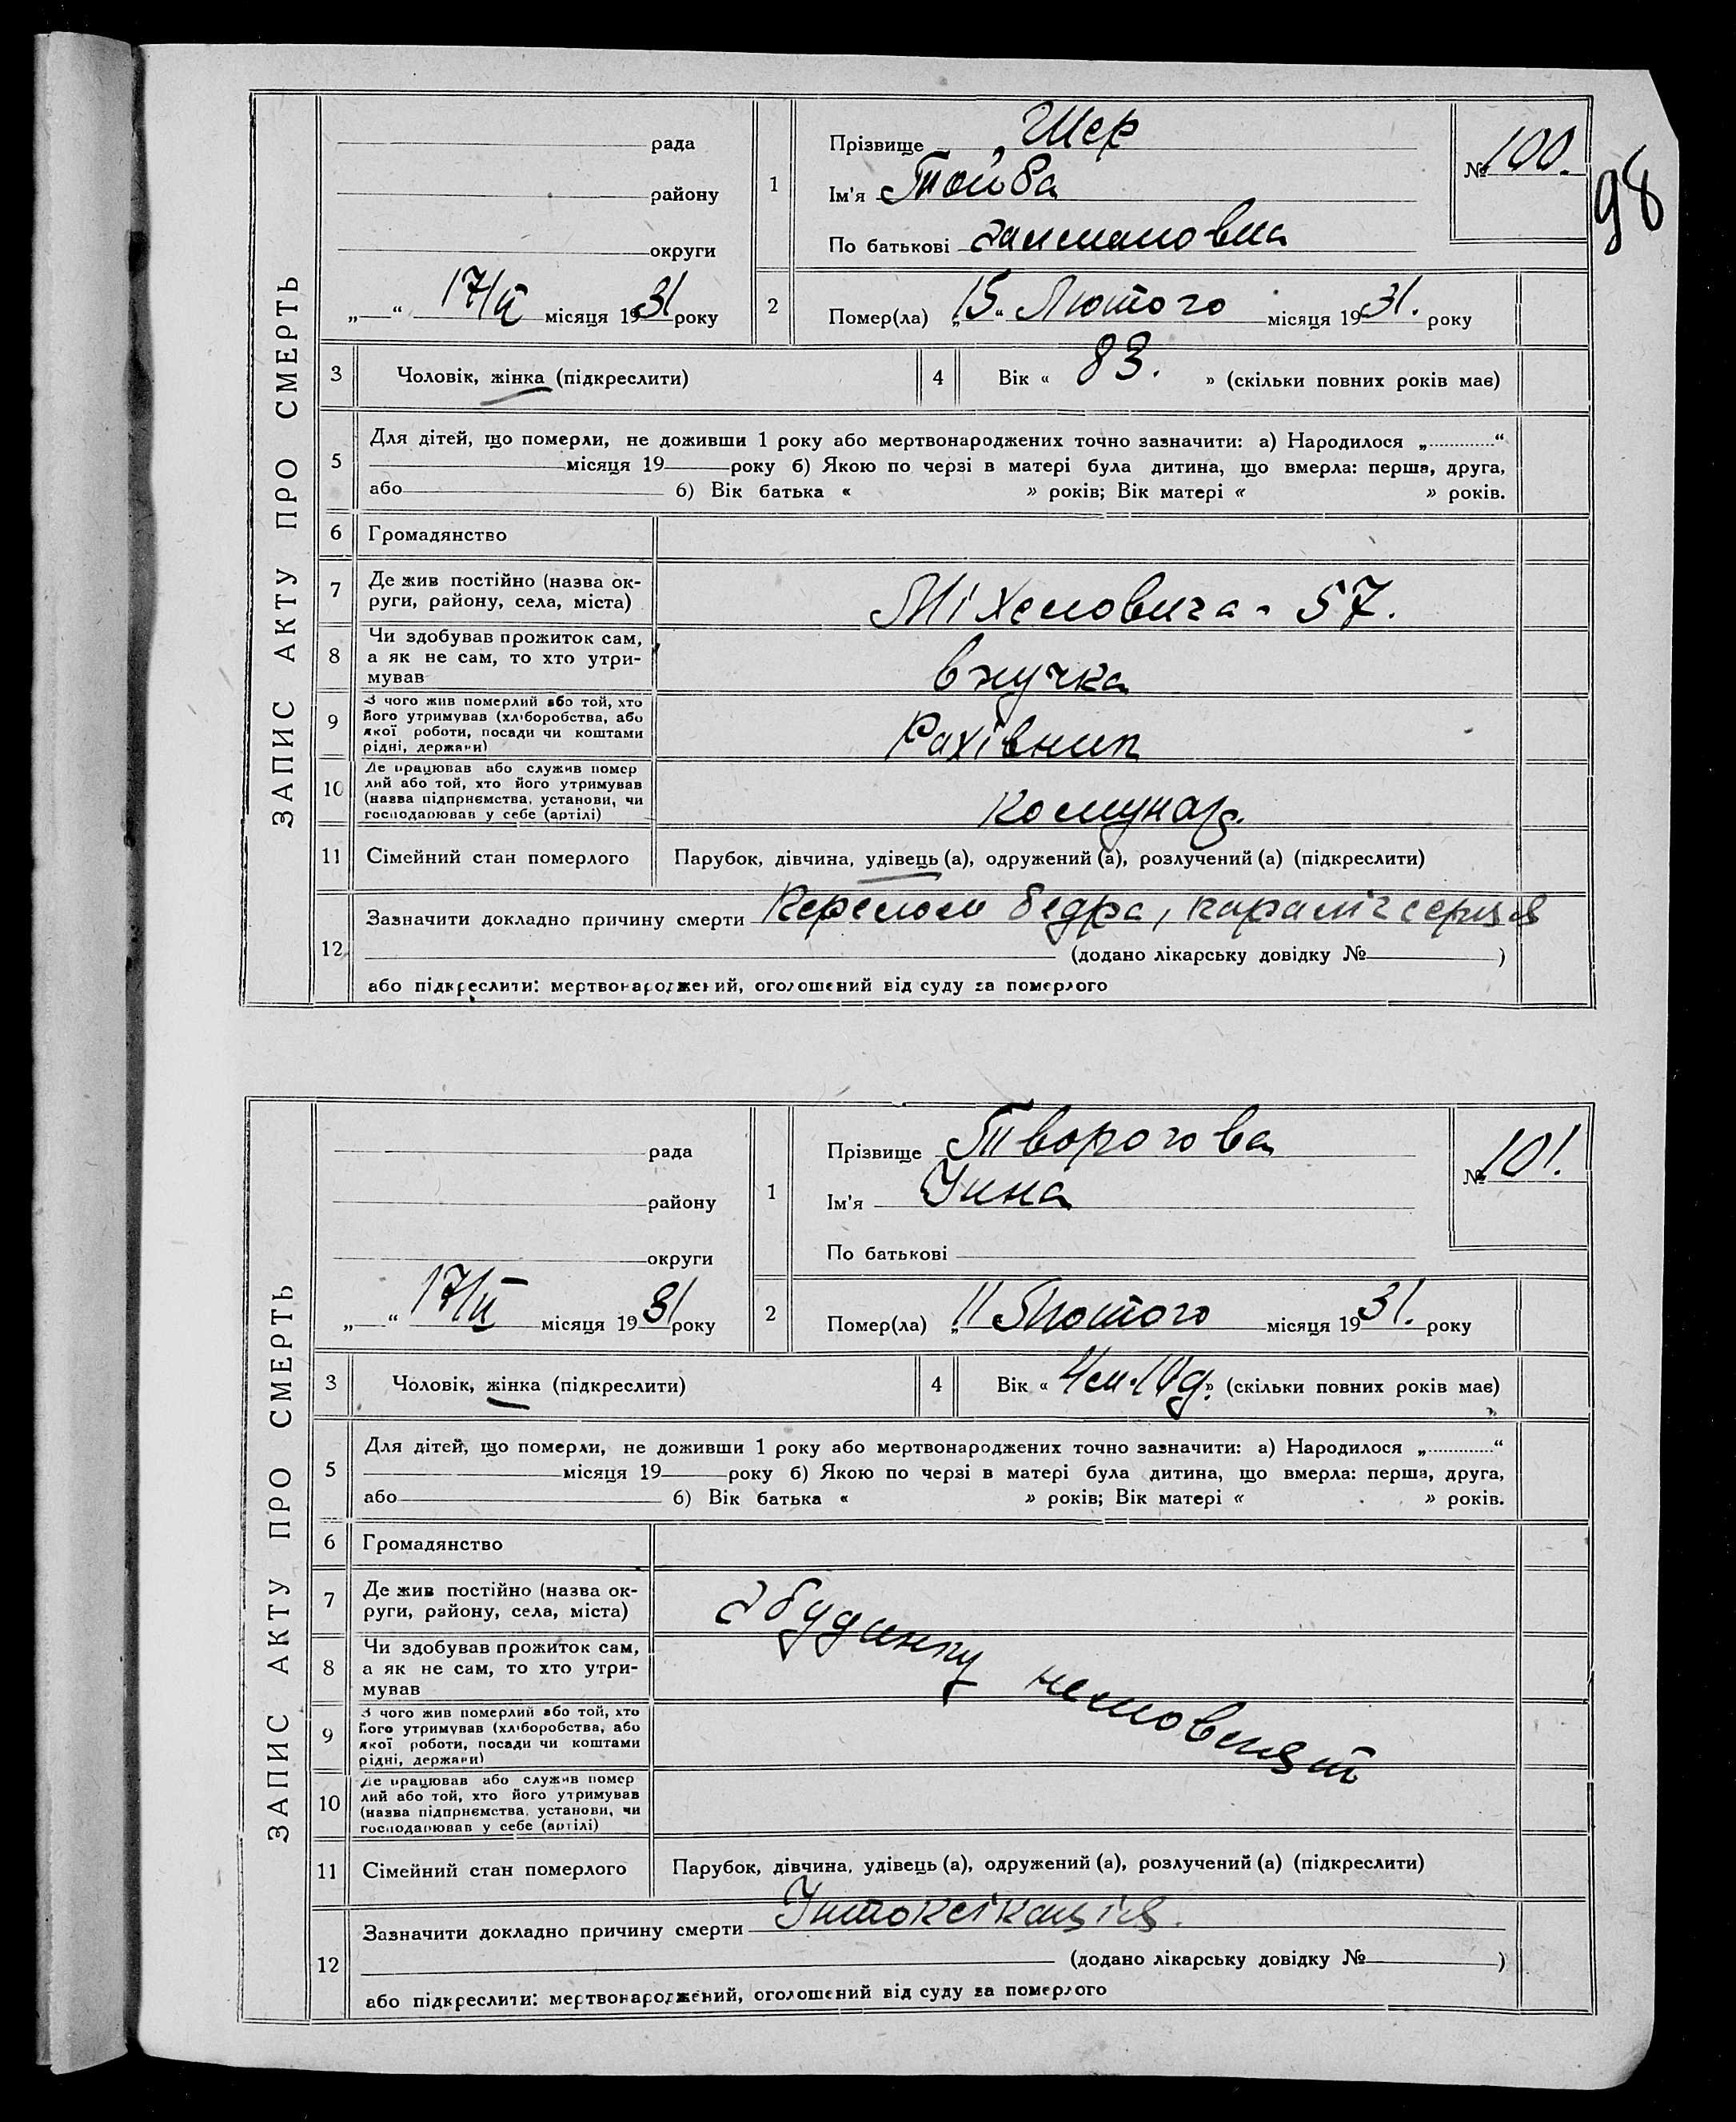 98
ЗАПИС АКТУ ПРО СМЕРТЬ
рада
району
округи
„ “ 17/ІІ місяця 1931 року
1
Прізвище Шер
Ім'я Тойба
По батькові Залмановна
№ 100.
2
Помер(ла) „15“ Лютого місяця 1931. року
3 Чоловік, жінка (підкреслити)
4 Вік « 83. » (скільки повних років має)
5
Для дітей, що померли, не доживши 1 року або мертвонароджених точно зазначити: а) Народилося „............“
місяця 19 року б) Якою по черзі в матері була дитина, що вмерла: перша, друга,
або б) Вік батька « » років; Вік матері « » років.
6 Громадянство
7
Де жив постійно (назва ок-
руги, району, села, міста)
Міхеловича - 57.
8
Чи здобував прожиток сам,
а як не сам, то хто утри-
мував
внучка
9
З чого жив померлий або той, хто
його утримував (хліборобства, або
якої роботи, посади чи коштами
рідні, держави)
Рахівник
10
Де працював або служив помер
лий або той, хто його утримував
(назва підприємства, установи, чи
господарював у себе (артілі)
Комунар.
11 Сімейний стан померлого
Парубок, дівчина, удівець (а), одружений (а), розлучений (а) (підкреслити)
12
Зазначити докладно причину смерти Перелом бедра, параліч серця
(додано лікарську довідку № )
або підкреслити: мертвонароджений, оголошений від суду за померлого
ЗАПИС АКТУ ПРО СМЕРТЬ
рада
району
округи
„ “ 17/ІІ місяця 1931 року
1
Прізвище Творогова
Ім'я Інна
По батькові
№ 101.
2
Помер(ла) „11 Лютого місяця 1931. року
3 Чоловік, жінка (підкреслити)
4 Вік « 4 м. 10 д. » (скільки повних років має)
5
Для дітей, що померли, не доживши 1 року або мертвонароджених точно зазначити: а) Народилося „............“
місяця 19 року б) Якою по черзі в матері була дитина, що вмерла: перша, друга,
або б) Вік батька « » років; Вік матері « » років.
6 Громадянство
7
Де жив постійно (назва ок-
руги, району, села, міста)
8
Чи здобував прожиток сам,
а як не сам, то хто утри-
мував
9
З чого жив померлий або той, хто
його утримував (хліборобства, або
якої роботи, посади чи коштами
рідні, держави)
10
Де працював або служив помер
лий або той, хто його утримував
(назва підприємства, установи, чи
господарював у себе (артілі)
З будинку немовлят
11 Сімейний стан померлого
Парубок, дівчина, удівець (а), одружений (а), розлучений (а) (підкреслити)
12
Зазначити докладно причину смерти Інтоксікація.
(додано лікарську довідку № )
або підкреслити: мертвонароджений, оголошений від суду за померлого